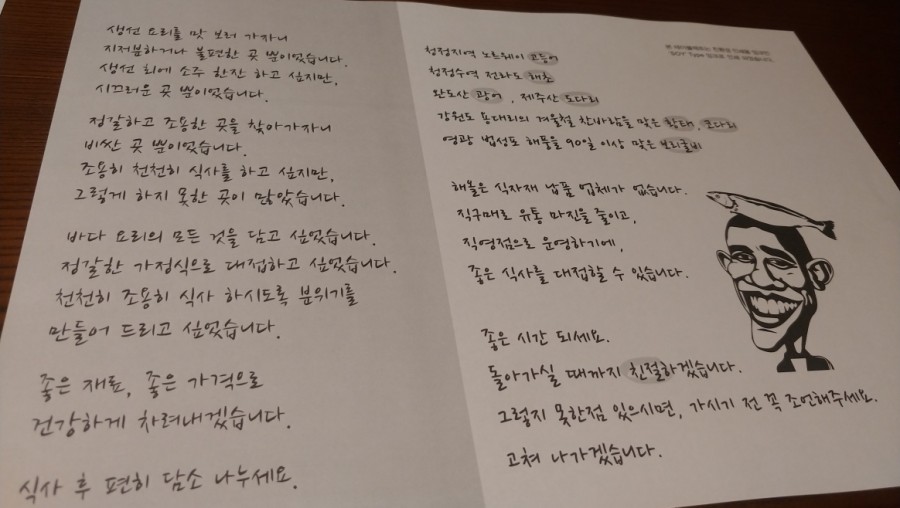 생선 요리를 맛 보러 가자니
지저분하거나 불편한 곳 뿐이었습니다.
생선 회에 소주 한잔 하고 싶지만,
시끄러운 곳 뿐이었습니다.
정갈하고 조용한 곳을 찾아가자니
비싼 곳 뿐이었습니다.
조용히 천천히 식사를 하고 싶지만,
그렇게 하지 못한 곳이 많았습니다.
바다 요리의 모든 것을 담고 싶었습니다.
정갈한 가정식으로 대접하고 싶었습니다.
천천히 조용히 식사 하시도록 분위기를
만들어 드리고 싶었습니다.
좋은 재료, 좋은 가격으로
건강하게 차려내겠습니다.
식사 후 편히 담소 나누세요.
청정지역 노르웨이 고등어
청정수역 전라도 해초
완도산 광어, 제주산 도다리
강원도 용대리의 겨울철 찬바람을 맞은 황태, 코다리
영광 법성포 해풍을 90일 이상 맞은 보리굴비
해몰은 식자재 납품 업체가 없습니다.
직구매로 유통 마진을 줄이고,
직영점으로 운영하기에,
좋은 식사를 대접할 수 있습니다.
좋은 시간 되세요.
돌아가실 때까지 친절하겠습니다.
그렇지 못한점 있으시면, 가시기 전 꼭 조언해주세요.
고쳐 나가겠습니다.